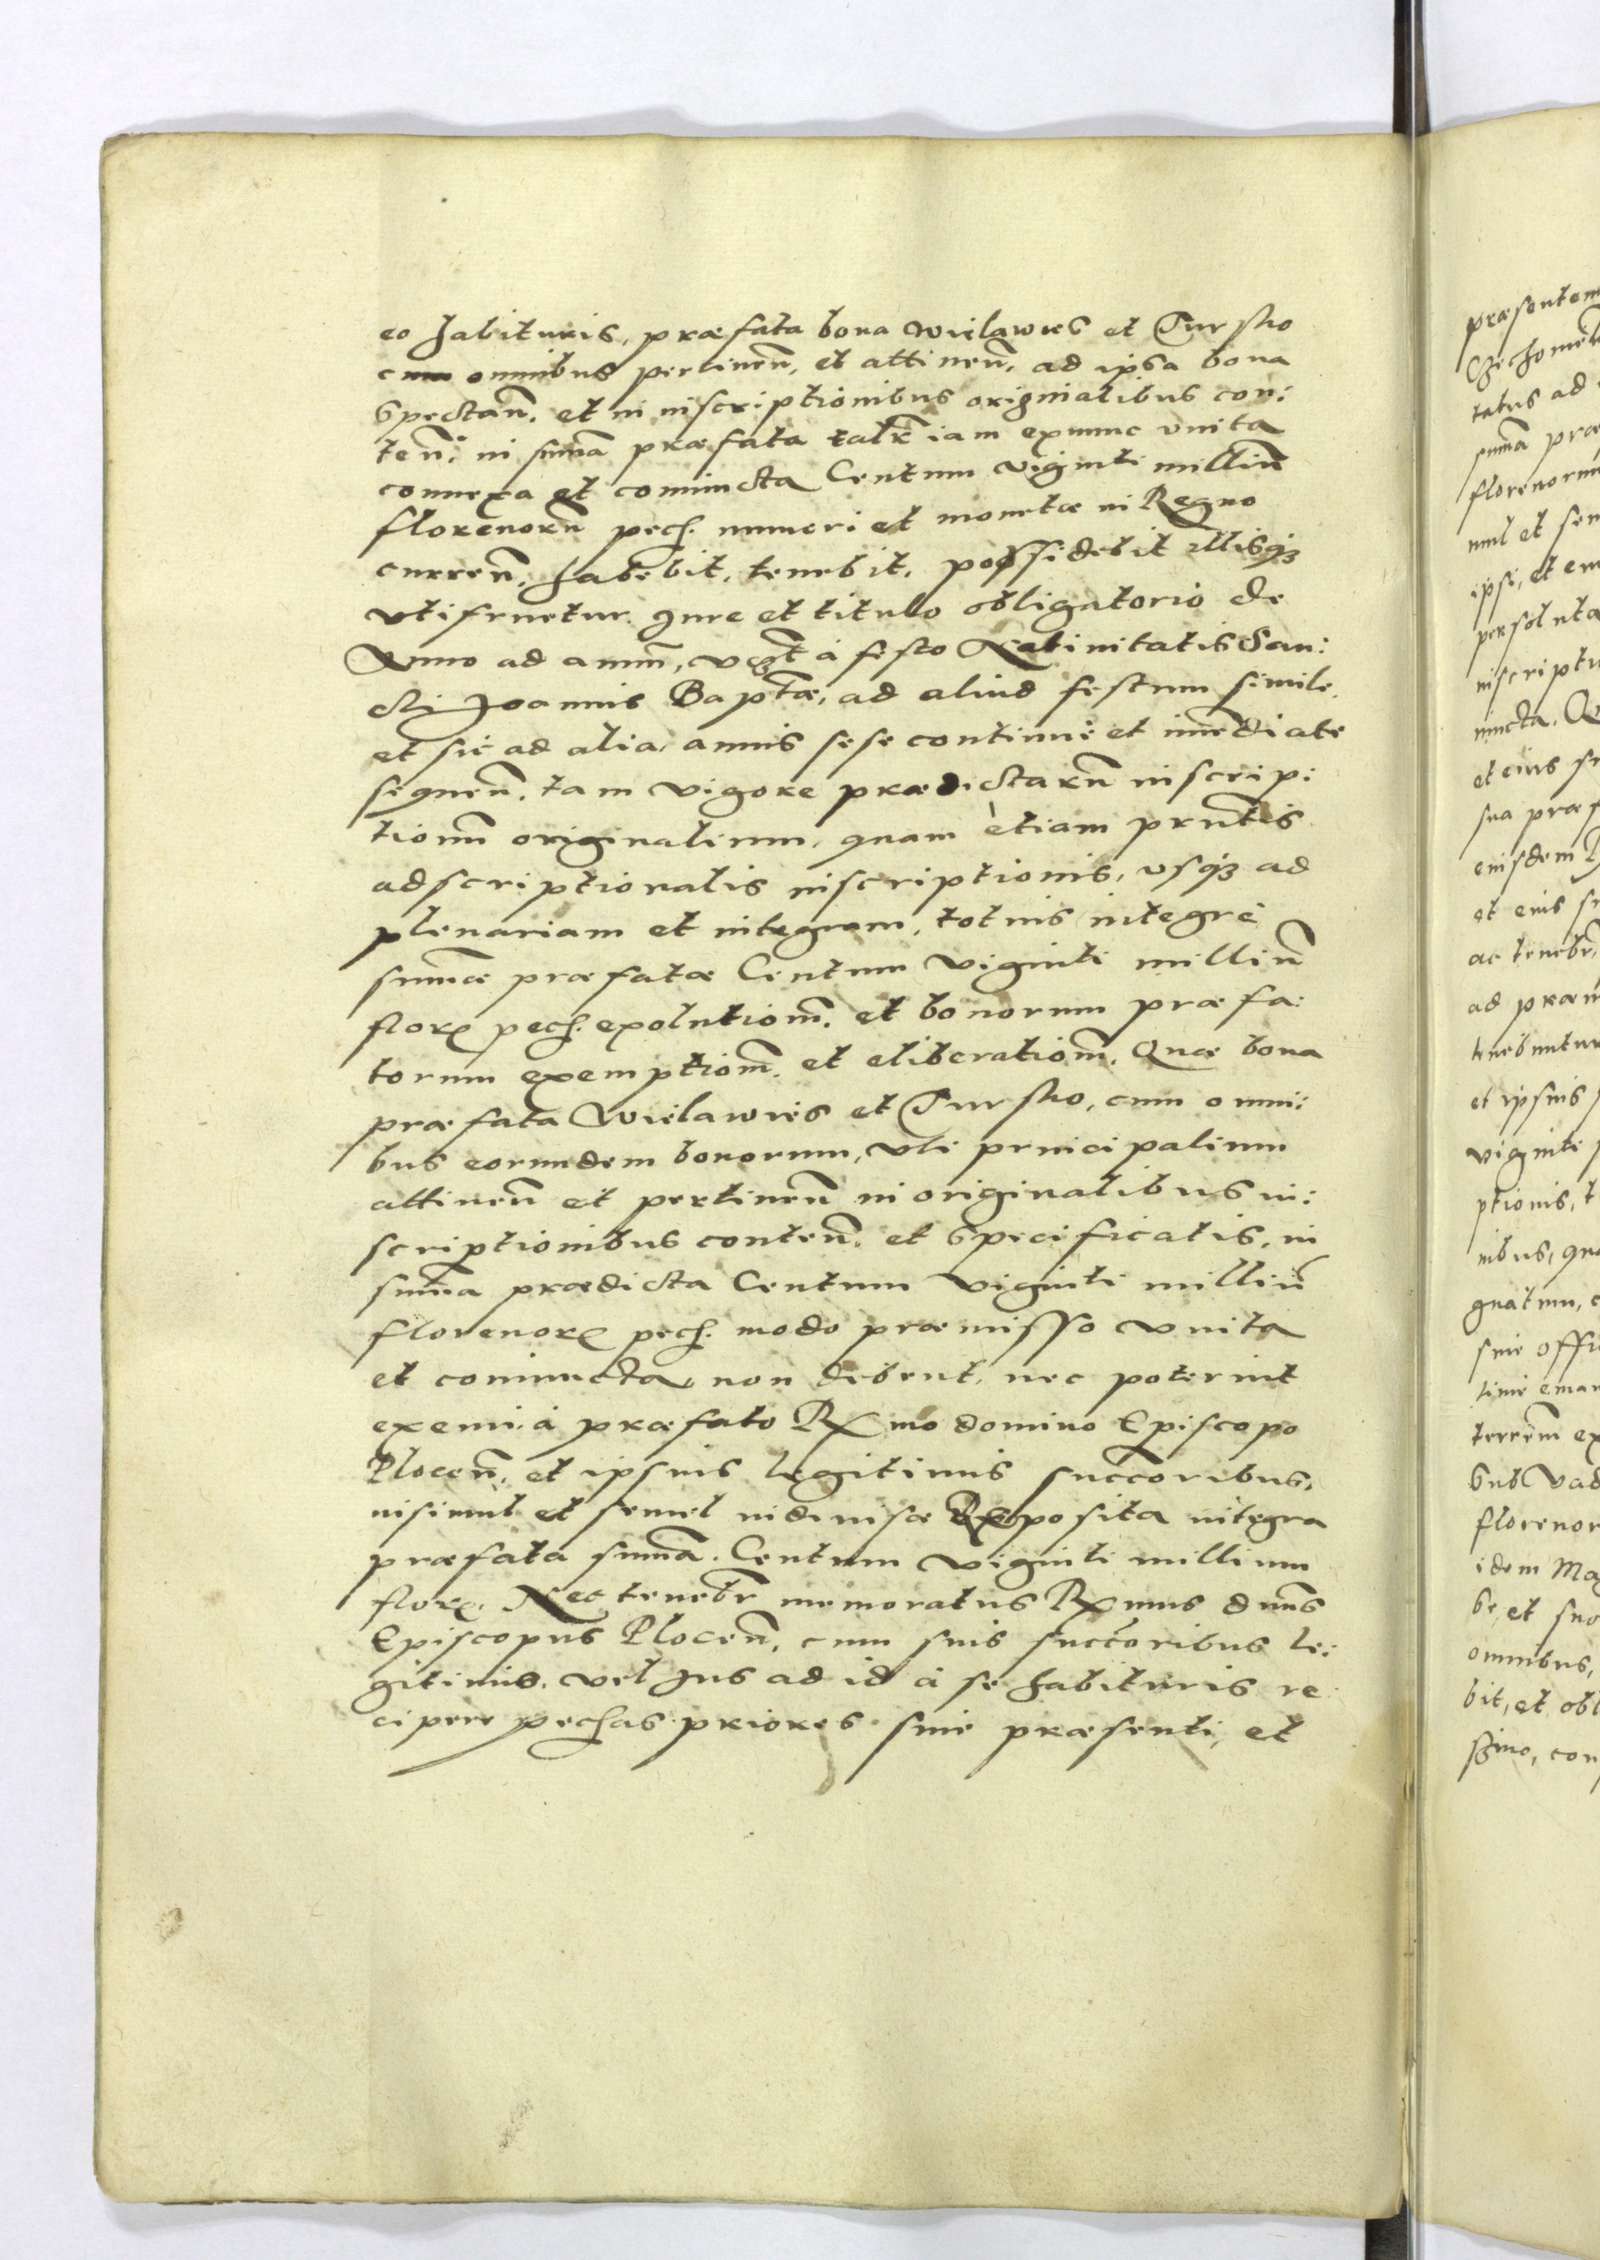 eo habituris, præfata bona Wielawies et Tursko
cum omnibus pertinen̄, et attinen̄, ad ipsa bona
spectan̄. et in inscriptionibus originalibus con:
ten̄: in sum̄a præfata talr̄ iam exnunc vnita
connexa et coniuncta Centum viginti milliū
florenorū pech. numeri et monetæ in Regno
curren̄. habebit, tenebit, possidebit illisq₃
vtifruetur iure et titulo obligatorio de
Anno ad annū, vꝫt à festo Natiuitatis San:
cti Joannis Baptæ, ad aliud festum simile,
et sic ad alia, annis sese continuè et im̄ediate
sequen̄. tam vigore prædictarū inscrip:
tionū originalium, quam etiam prn̄tis
adscriptionalis inscriptionis, vsq₃ ad
plenariam et integram, totius integrè
sum̄æ præfatæ Centum viginti milliū
florꝝ pech. exolutionē. et bonorum præfa:
torum exemptionē. et eliberationē. Quæ bona
præfata Wielawies et Tursko, cum omni:
bus eorundem bonorum, vti principalium
attinen̄ et pertinen̄ in originalibus in:
scriptionibus conten̄. et specificatis, in
sum̄a prædicta Centum viginti milliū
florenorꝝ pech. modo præmisso vnita
et coniuncta, non debent, nec poterint
exemi à præfato Rx̄mo domino Episcopo
Plocen̄. et ipsius legitimis succoribus,
nisi simul et semel indiuisæ Reposita integra
præfata sum̄a. Centum viginti millium
florꝝ. Nec tenebr̄ memoratus Rx̄mus dn̄us
Episcopus Plocen̄, cum suis succoribus le:
gitimis, vel ius ad id à se habituris re
cipere pechas priores siue præsenti, et
præsentem
tatus ad
sum̄a præ
florenorum
mul et sem
ipsi, et
persoluta
inscriptio
iuncta. Q
et eius su
sua præf
eiusdem
et eius su
ac tenebr̄,
ad præm
tenebuntur
et ipsius
viginti
ptionis, t
nibus, qua
gnatum, c
siue offi
timè eman
terrēm ex
sub vad
florenor
idem Mag
se, et suo
omnibus,
bit, et obl
con